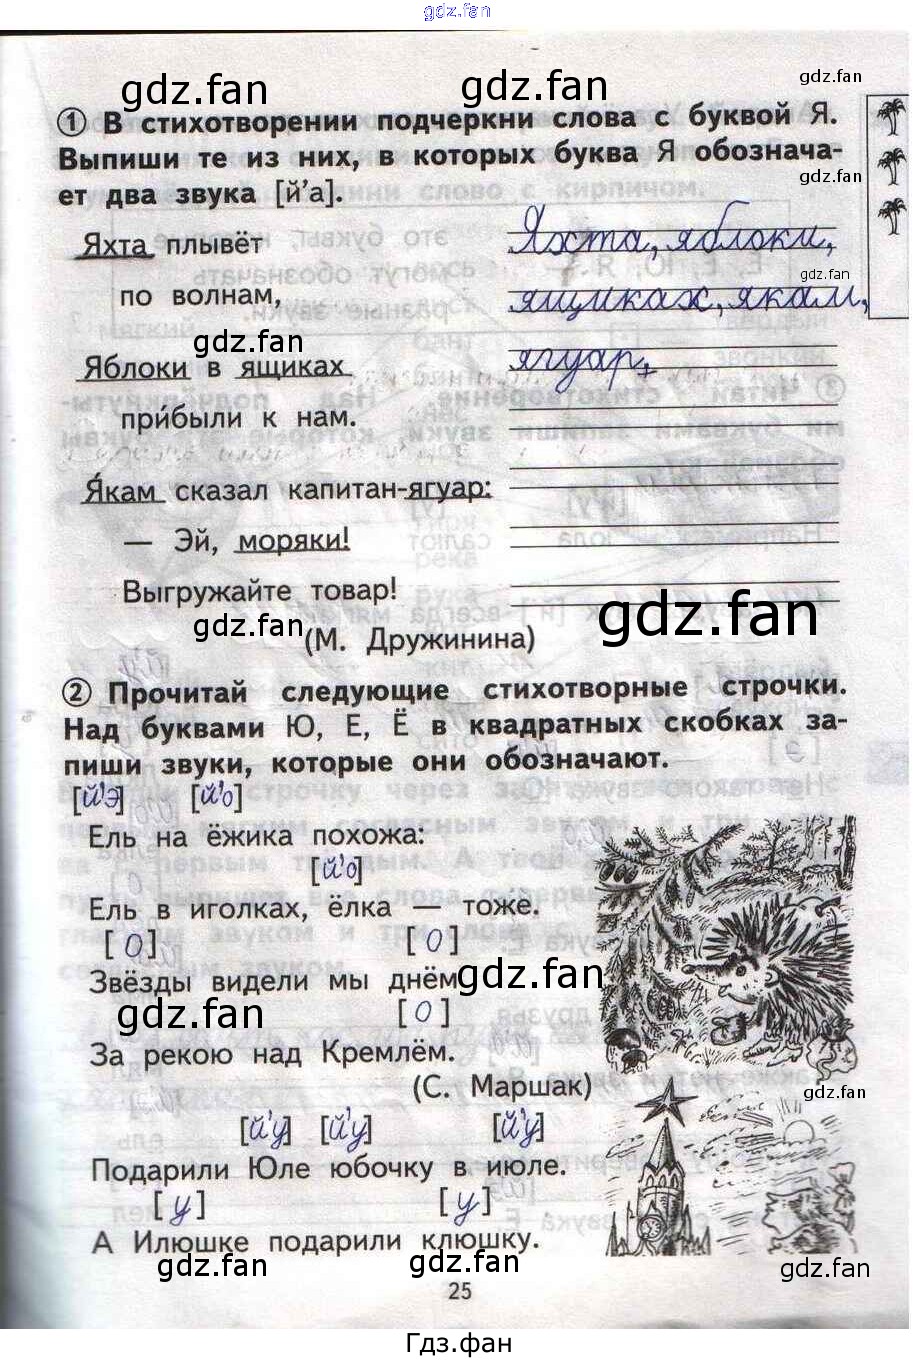 gdz.fan
gdz.fan gdz.fan gdz.fan
① В стихотворении подчеркни слова с буквой Я.
Выпиши те из них, в которых буква Я обознача-
ет два звука [й'а].
gdz.fan
Яхта плывёт
по волнам,
Яблоки в ящиках
при́были к нам.
Я́кам сказал капитан-ягуар:
— Эй, моряки!
Выгружайте товар!
(М. Дружинина)
Яхта, яблоки,
ящиках, якам,
ягуар.
gdz.fan
gdz.fan
gdz.fan
gdz.fan
② Прочитай следующие стихотворные строчки.
Над буквами Ю, Е, Ё в квадратных скобках за-
пиши звуки, которые они обозначают.
[й'э] [й'о]
Ель на ёжика похожа:
[й'о]
Ель в иголках, ёлка — тоже.
[о] [о]
Звёзды видели мы днём
gdz.fan
gdz.fan
[о]
За рекою над Кремлём.
(С. Маршак)
gdz.fan
[й'у] [й'у] [й'у]
Подарили Юле юбочку в июле.
[у] [у]
А Илюшке подарили клюшку.
gdz.fan gdz.fan gdz.fan
25
Гдз.фан